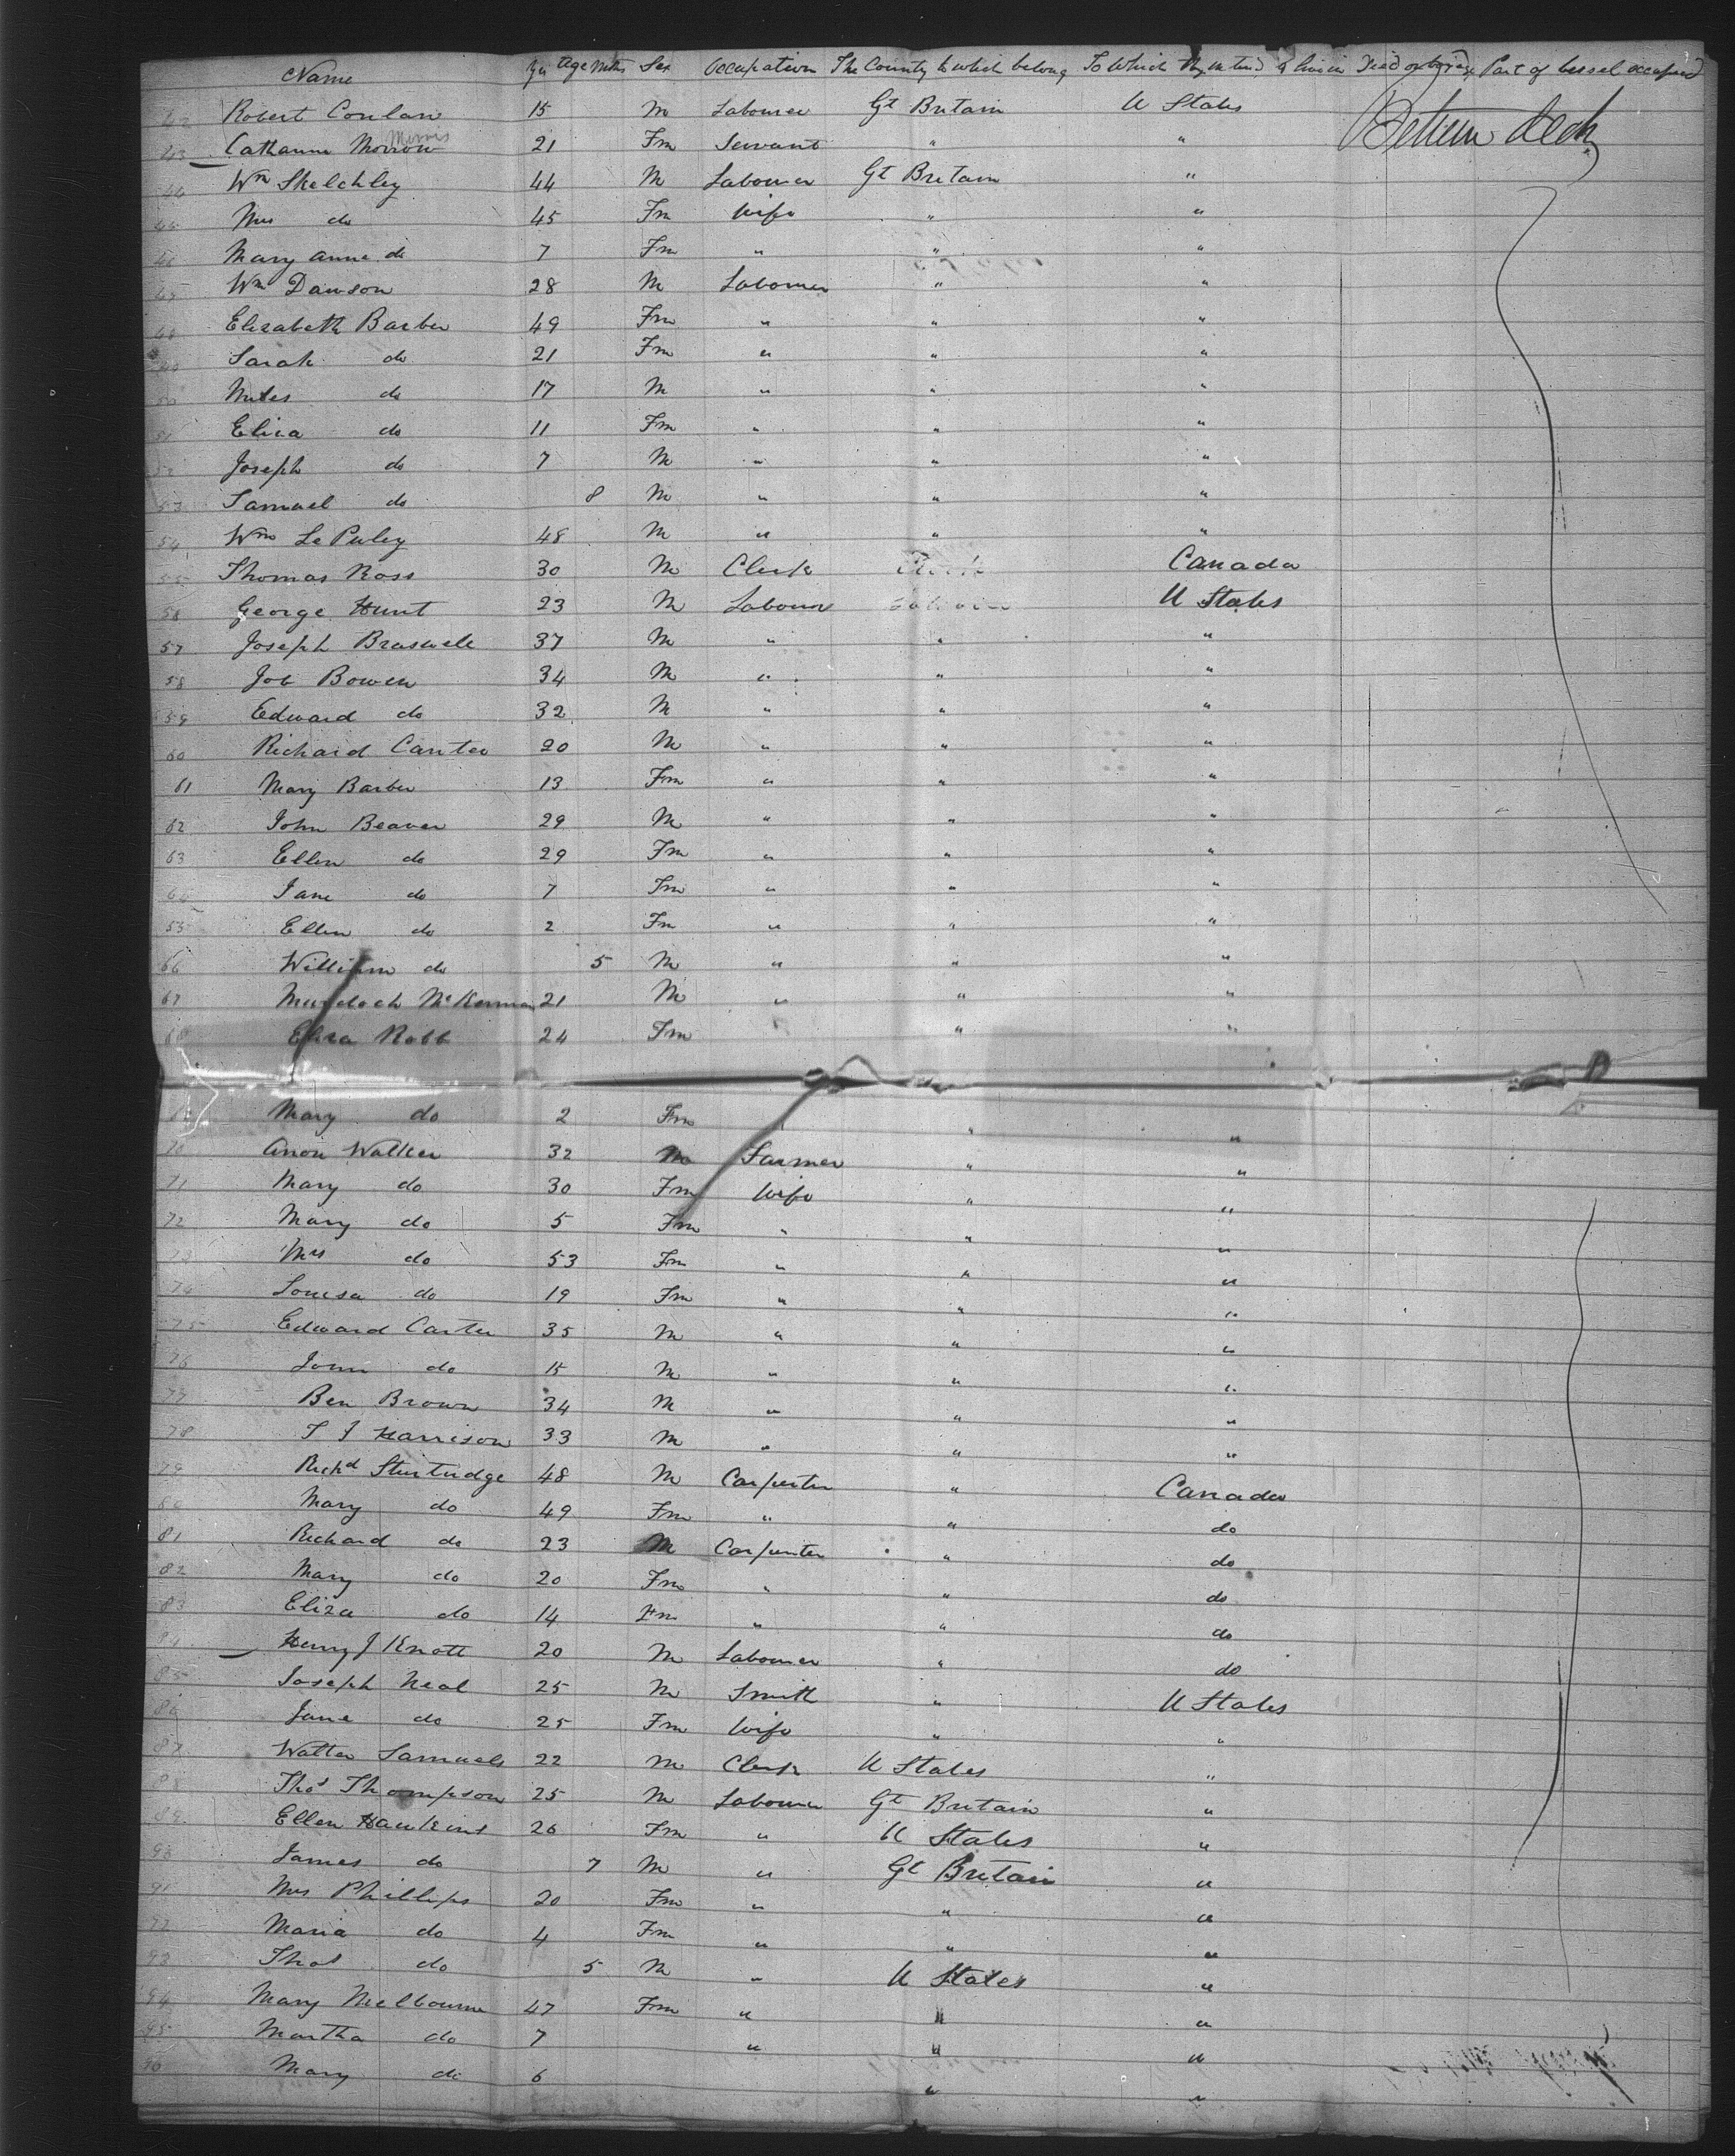 Name Yrs Age Mths Sex Occupation The County to which belong To Which they intend to live in Died on Voyage Part of vessel occupied
Robert Conlan 15 M Labourer Gt Britain U States Between deck
43 Catharine Morrow Morris 21 Fm Servant " "
44 Wm Skelchley 44 M Labourer Gt Britain "
45 Mrs do 45 Fm Wife " "
46 Mary Anne do 7 Fm " " "
Wm Dawson 28 M Labourer " "
Elizabeth Barber 49 Fm " " "
Sarah do 21 Fm " " "
50 Miles do 17 M " " "
51 Eliza do 11 Fm " " "
52 Joseph do 7 M " " "
53 Samuel do 8 M " " "
54 Wm Le Puley 48 M " " "
55 Thomas Ross 30 M Clerk Canada
56 George Hunt 23 M Labour U States
57 Joseph Braswell 37 M " " "
58 Job Bowen 34 M " " "
59 Edward do 32 M " " "
60 Richard Canter 20 M " " "
61 Mary Barber 13 Fm " " "
62 John Beaver 29 M " " "
63 Ellen do 29 Fm " " "
64 Jane do 7 Fm " " "
55 Ellen do 2 Fm " " "
66 William do 5 M " " "
67 Murdoch McKerman 21 M " " "
68 Eliza Robb 24 Fm " " "
Mary do 2 Fm " "
70 Anon Walker 32 M Farmer " "
71 Mary do 30 Fm Wife " "
72 Mary do 5 Fm " " "
73 Mrs do 53 Fm " " "
74 Louisa do 19 Fm " " "
75 Edward Carter 35 M " " "
76 John do 15 M " " "
77 Ben Brown 34 M " " "
78 T J Harrison 33 M " " "
79 Richd Sturtridge 48 M Carpenter " Canada
80 Mary do 49 Fm " " do
81 Richard do 23 M Carpenter " do
82 Mary do 20 Fm " " do
83 Eliza do 14 Fm " " do
84 Henry J Knott 20 M Labourer " do
85 Joseph Neal 25 M Smith " U States
86 Jane do 25 Fm Wife " "
87 Walter Samuels 22 M Clerk U States "
88 Thos Thompson 25 M Labourer Gt Britain "
89 Ellen Hawkins 26 Fm " U States "
90 James do 7 M " Gt Britain "
91 Mrs Phillips 20 Fm " " "
92 Maria do 4 Fm " " "
93 Thos do 5 M " U States "
94 Mary Melbourne 47 Fm " " "
95 Martha do 7 " " "
96 Mary do 6 " "